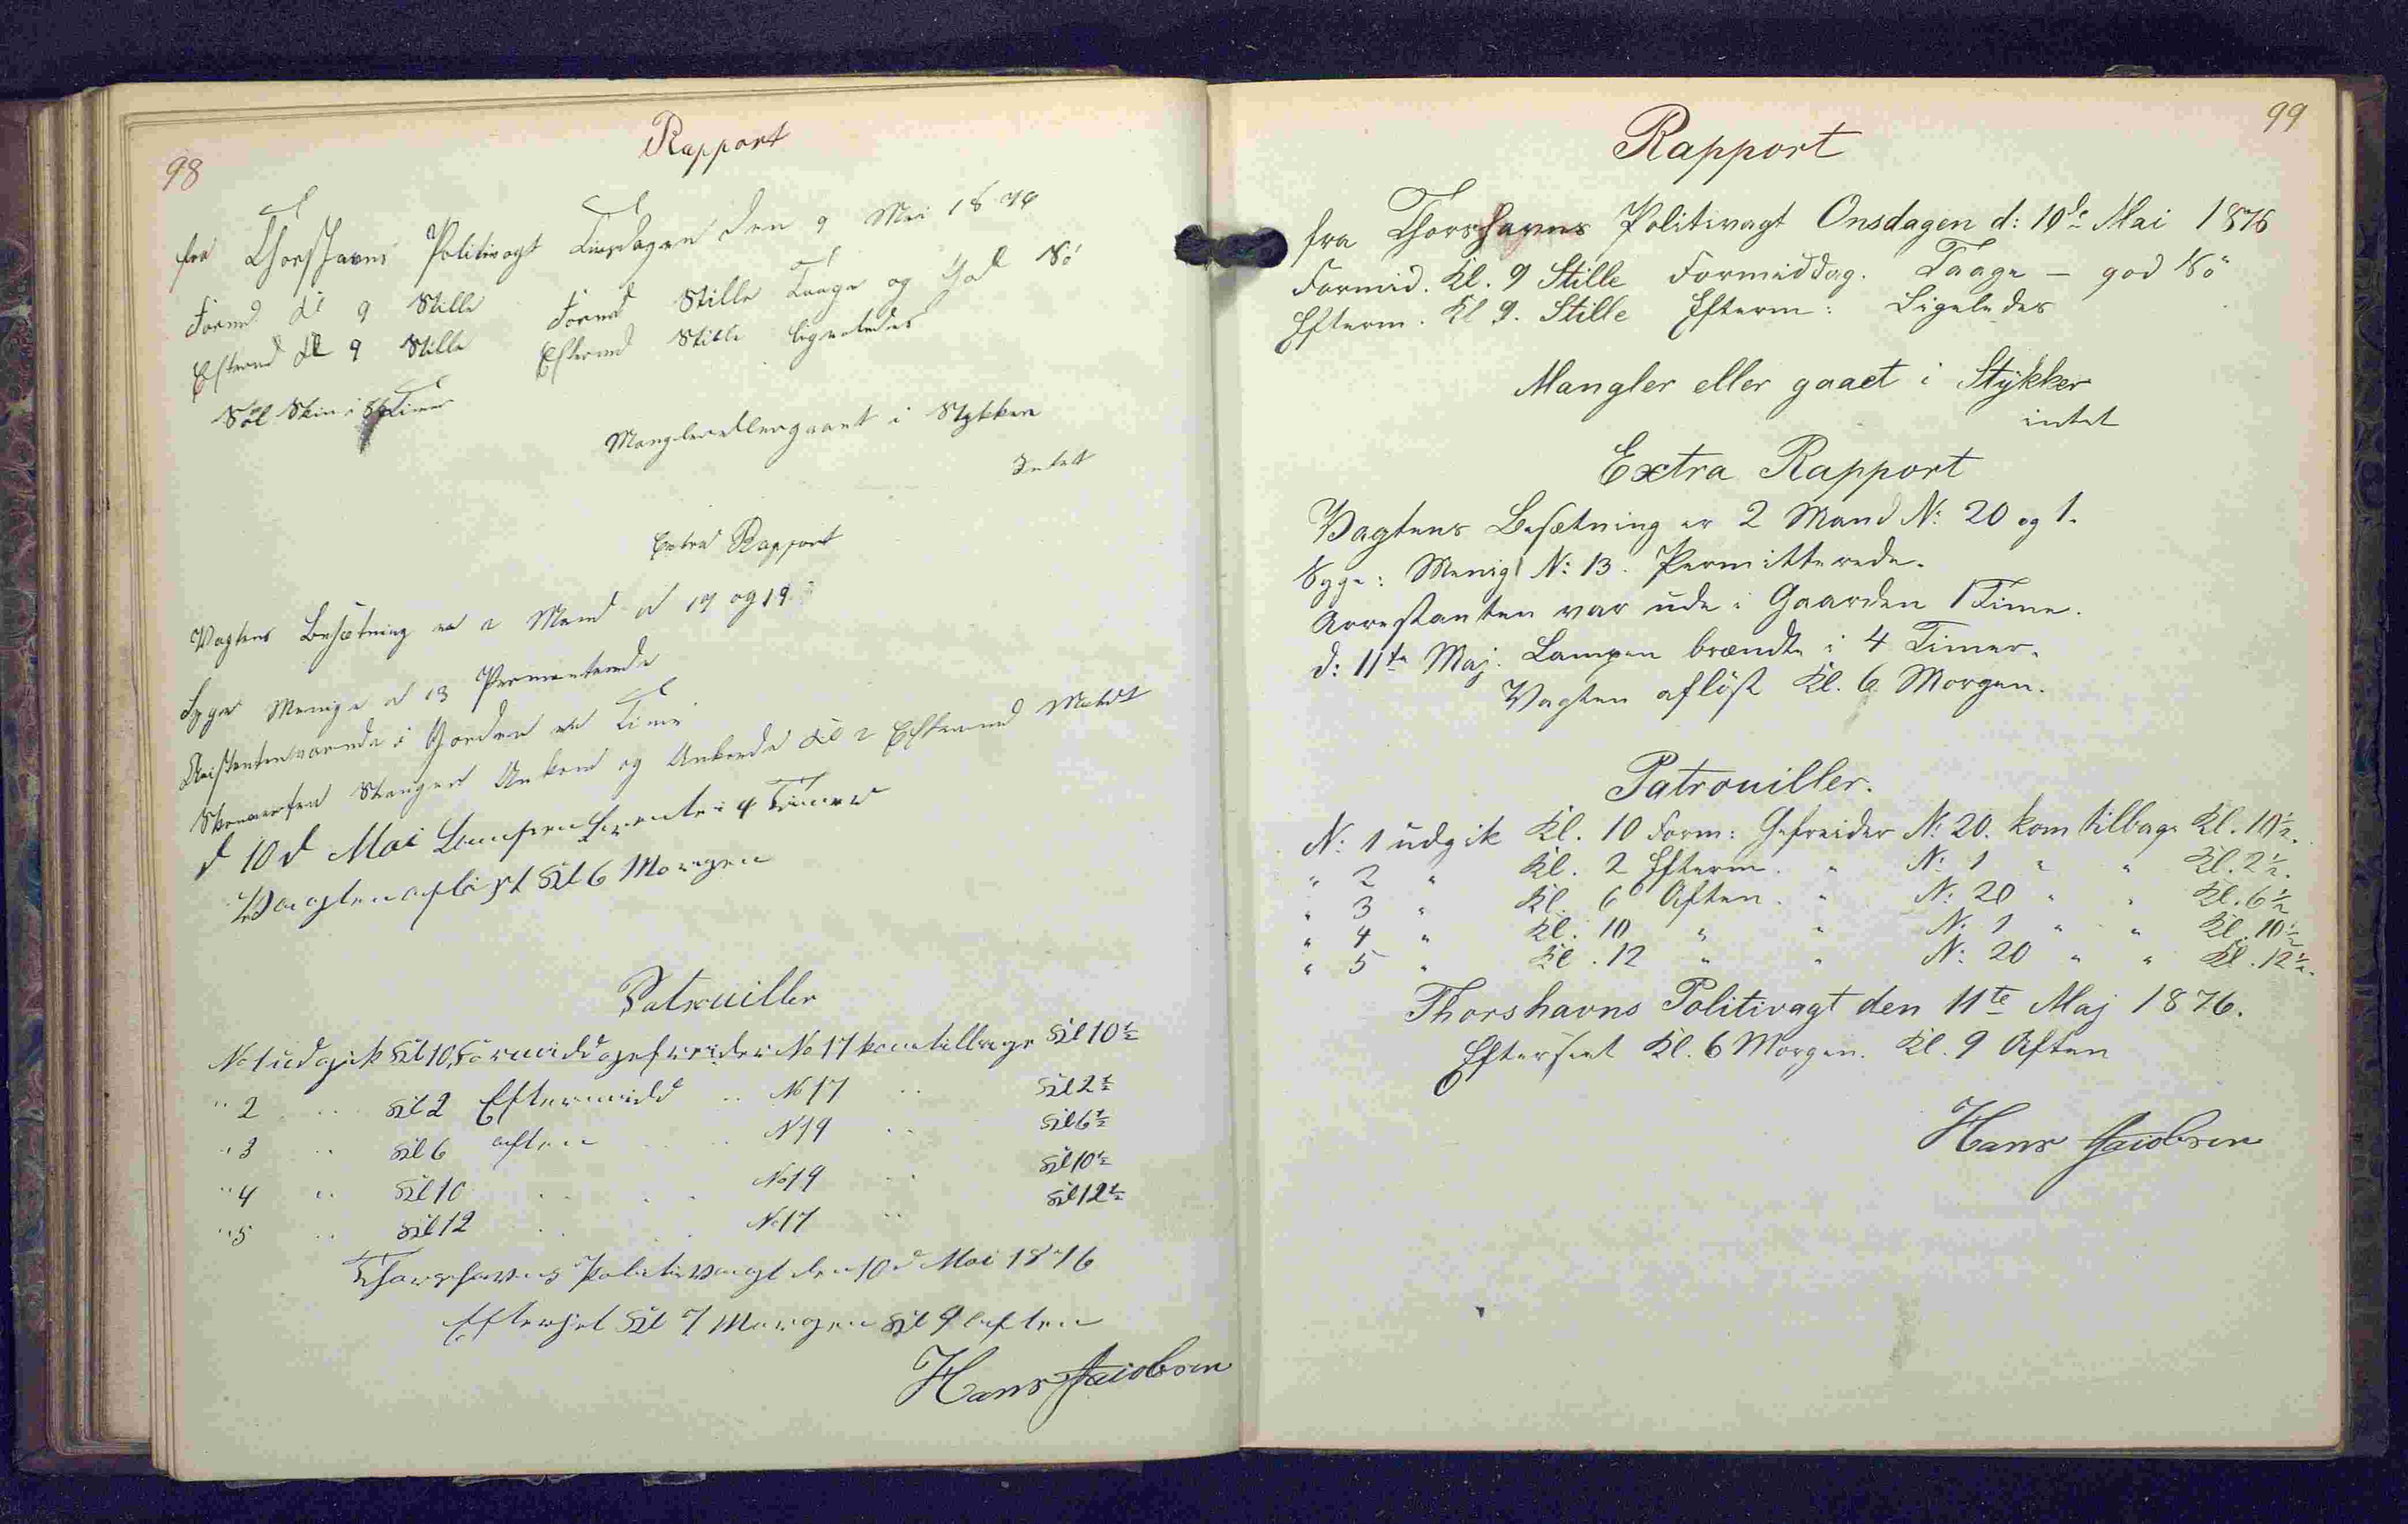 98
Rapport
fra Thorshavns Politivagt Tirsdagen den 9 Mai 1876
Formd Kl 9 Stille Formd Stille Taage og God Sö
Eftermd Kl 9 Stille Eftermd Stille ligeledes
Sol Skin i Timer
Mangler eller gaaet i Stykker
Intet
Extra Rapport
Vagtens Besætning er 2 Mand N 17 og 19
Syge Menige N 13 Permenterede
Arestanten varude i Gorden en Time
Skonnerten Ankom og Ankrede Kl 2 Eftermd
d 10 d Mai Lampen brente i 4 Timer
Vagten aflöst Kl 6 Morgen
Patrouiller
No 1 udgik Kl 10 Formidd gefreider No 17 kom tilbage Kl 10½
" 2 " Kl 2 Eftermidd " No 17 " Kl 2½
" 3 " Kl 6 aften " N 19 " Kl 6½
" 4 " Kl 10 " " No 19 " Kl 10½
" 5 " Kl 12 " " No 17 " Kl 12½
Thorshavns Politivagt den 10 d Mai 1876
Efterset Kl 7 Morgen Kl 9 aften
Hans Jacobsen
99
Rapport
fra Thorshavns Politivagt Onsdagen d: 10de Mai 1876
Formid. Kl. 9 Stille Formiddag. Taage – god Sö
Efterm. Kl 9. Stille Efterm: Ligeledes
Mangler eller gaaet i Stykker
intet
Extra Rapport
Vagtens Besætning er 2 Mand N: 20 og 1.
Syge: Menig N: 13. Permitterede.
Arrestanten var ude i Gaarden 1 Time.
d: 11te Maj. Lampen brændte i 4 Timer.
Vagten aflöst Kl. 6 Morgen.
Patrouiller.
N: 1 udgik Kl. 10 Form: Gefreider N: 20. kom tilbage Kl. 10½.
" 2 " Kl. 2 Efterm. " N: 1 " " Kl. 2½.
" 3 " Kl. 6 Aften. " N: 20 " " Kl. 6½
" 4 " Kl. 10 " " N: 1 " " Kl. 10½
" 5 " Kl. 12 " " N: 20 " " Kl. 12½.
Thorshavns Politivagt den 11te Maj 1876.
Efterseet Kl. 6 Morgen. Kl. 9 Aften
Hans Jacobsen